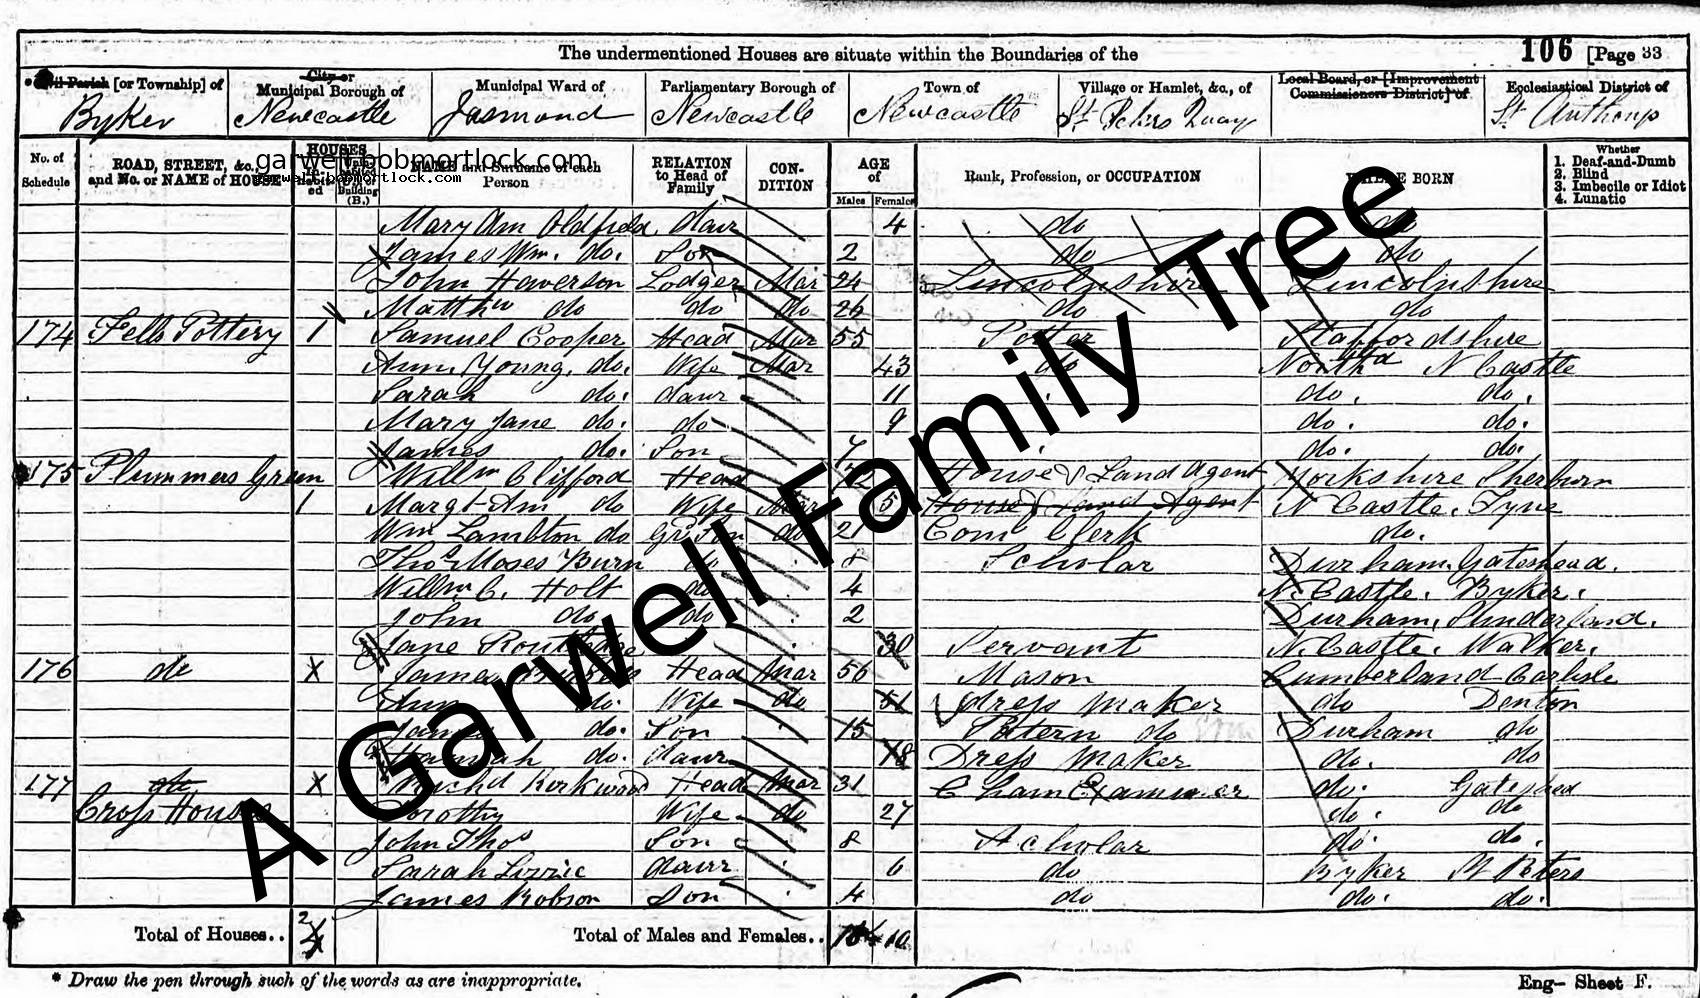 The undermentioned Houses are situate within the Boundaries of the
106 [Page 33
Civil Parish [or Township] of
City or Municipal Borough of
Municipal Ward of
Parliamentary Borough of
Town of
Village or Hamlet, &c., of
Local Board, or [Improvement Commissioners District] of
Ecclesiastical District of
Byker Newcastle Jesmond Newcastle Newcastle St Peters Quay St Anthony
garwell.bobmortlock.com
garwell.bobmortlock.com
No. of Schedule
ROAD, STREET, &c., and No. or NAME of HOUSE
HOUSES
NAME and Surname of each Person
RELATION to Head of Family
CONDITION
AGE of
Males Females
Rank, Profession, or OCCUPATION
WHERE BORN
Whether
1. Deaf-and-Dumb
2. Blind
3. Imbecile or Idiot
4. Lunatic
Mary Ann Oldfield daur 4 do do
James Wm. do. Son 2 do do
John Haverson Lodger Mar 24 Lincolnshire Lincolnshire
Matthw do do do 26 do do
174 Fells Pottery 1 Samuel Cooper Head Mar 55 Potter Staffordshire
Ann Young do. Wife Mar 43 do Northd N Castle
Sarah do. daur 11 do. do.
Mary Jane do. do 9 do. do.
James do. Son 7 do. do.
175 Plummers Green Willm Clifford Head 72 House & Land Agent Yorkshire Sherburn
1 Margt Ann do Wife Mar 5 House & Land Agent N Castle. Tyne
Wm Lambton do Gr Son do 21 Com Clerk do.
Thos Moses Burn do 8 Scholar Durham. Gateshead.
Willm C. Holt do 4 N. Castle. Byker.
John do do 2 Durham. Sunderland.
Jane 30 Servant N. Castle. Walker.
176 do X James Head Mar 56 Mason Cumberland Carlisle
Ann do. Wife do 51 dress maker do Denton
James do. Son 15 Patern do Durham do
Hannah do. daur 18 Dress Maker do. do
177 do X Michd Kirkwood Head Mar 31 Chain Examiner do. Gateshead
Cross House Dorothy Wife do 27 do. do
John Thos Son 8 Scholar do. do.
Sarah Lizzie daur 6 do Byker St Peters
James Robson Son 4 do do. do.
A Garwell Family Tree
Total of Houses..
Total of Males and Females.. 10
* Draw the pen through such of the words as are inappropriate.
Eng- Sheet F.